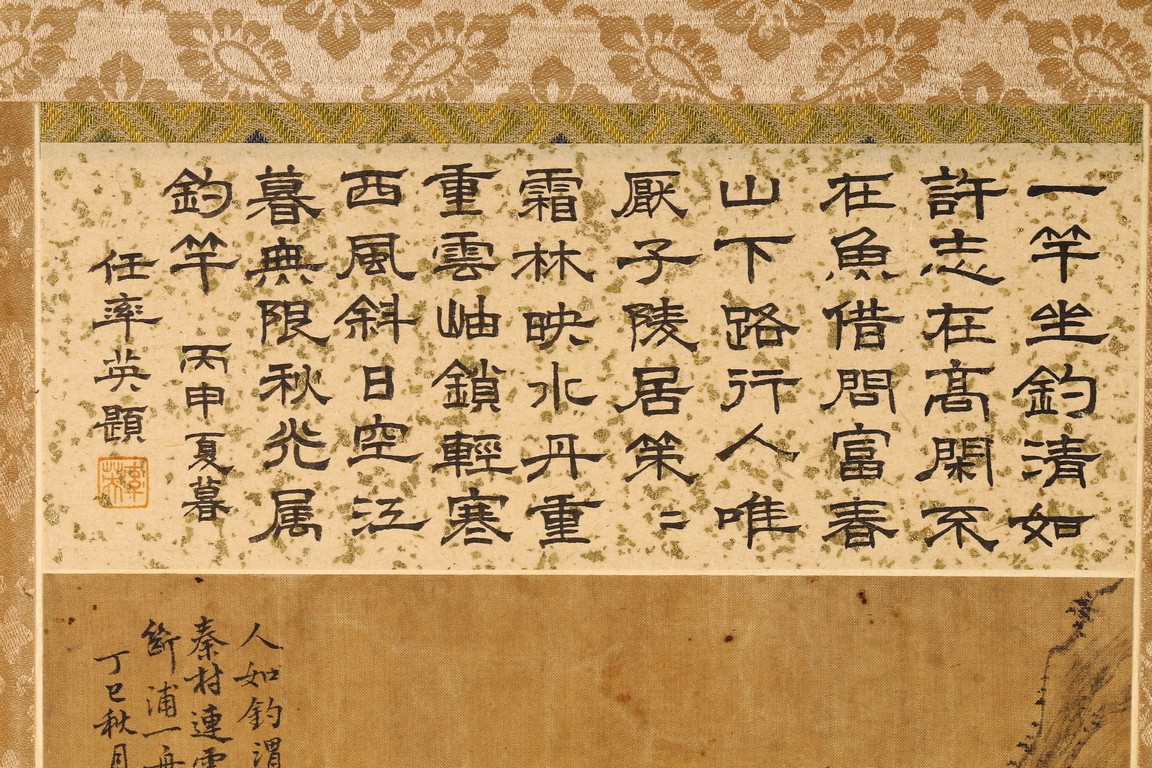 一竿坐釣清如
許志在髙閑不
在魚借問富春
山下路行人唯
厭子陵居策二
霜林映水丹重
重雲岫鎖輕寒
西風斜日空江
暮無限秋光属
釣竿 丙申夏暮
任率英題
率英
人如釣渭
秦村連
斷浦一
丁巳秋月